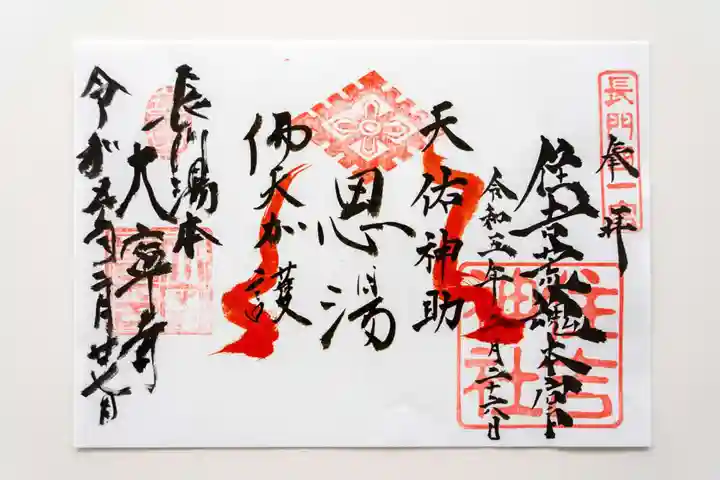 長門國一宮
奉拝
住吉荒魂本宮
住吉神社
令和三年二月二十六日
天佑神助
恩湯
佛天加護
長門湯本
大寧寺
二月廿七日